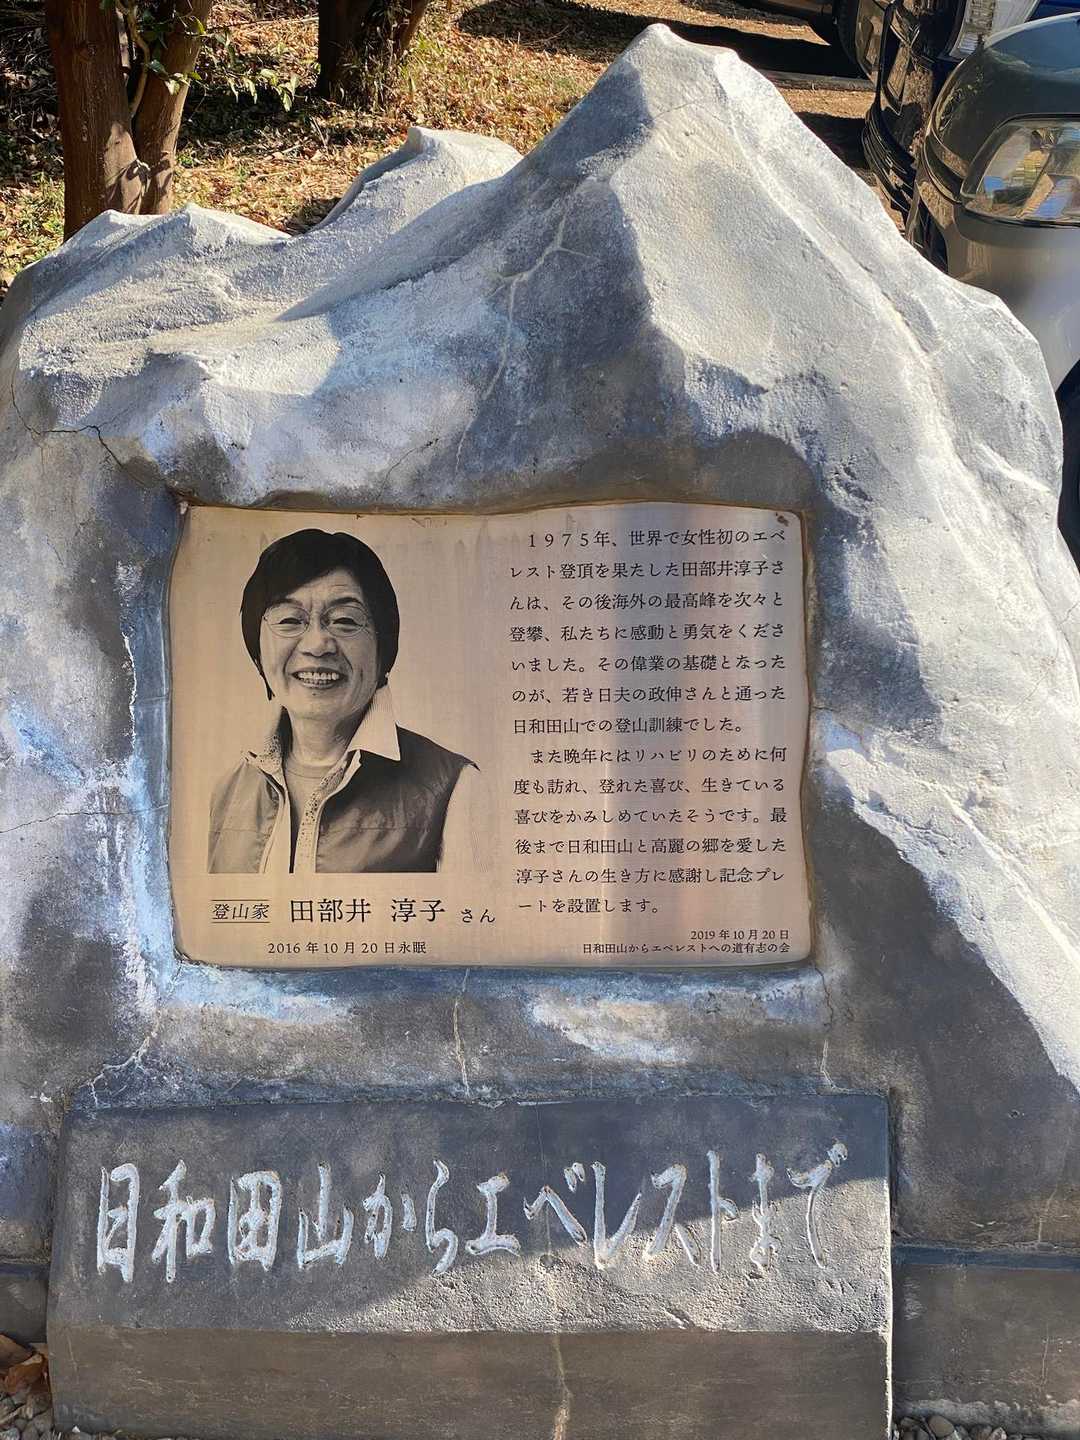 1975年、世界で女性初のエベ
レスト登頂を果たした田部井淳子さ
んは、その後海外の最高峰を次々と
登攀、私たちに感動と勇気をくださ
いました。その偉業の基礎となった
のが、若き日夫の政伸さんと通った
日和田山での登山訓練でした。
また晩年にはリハビリのために何
度も訪れ、登れた喜び、生きている
喜びをかみしめていたそうです。最
後まで日和田山と高麗の郷を愛した
淳子さんの生き方に感謝し記念プレ
ートを設置します。
2019年10月20日
日和田山からエベレストへの道有志の会
登山家 田部井 淳子 さん
2016年10月20日永眠
日和田山からエベレストまで